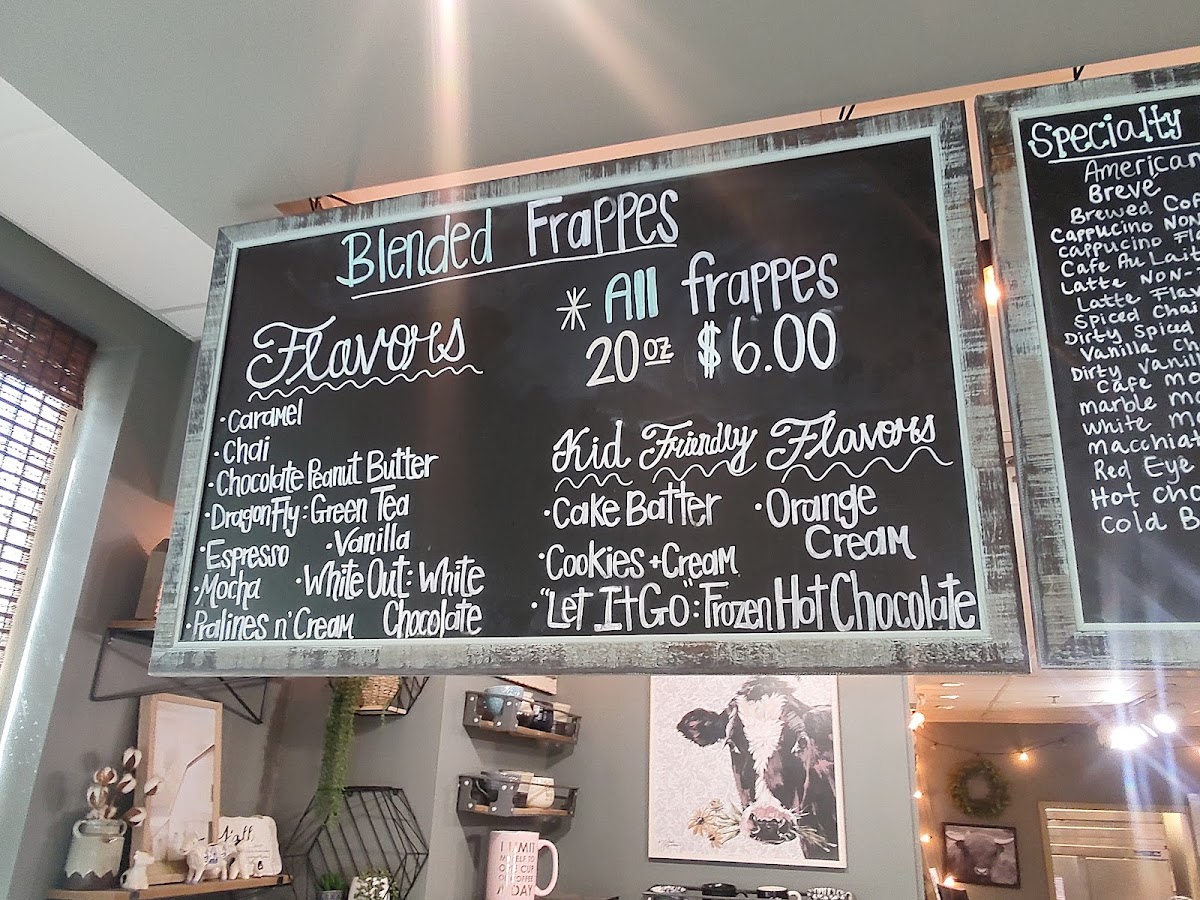 Blended Frappes
Flavors
• Caramel
• Chai
• Chocolate Peanut Butter
• DragonFly: Green Tea
• Espresso • Vanilla
• Mocha • White Out: White
• Pralines n' Cream Chocolate
* All frappes
20 oz $6.00
Kid Friendly Flavors
• Cake Batter • Orange
Cream
• Cookies + Cream
• "Let It Go": Frozen Hot Chocolate
Specialty
American
Breve
Brewed Cof
Cappucino Non
Cappucino Fla
Cafe Au Lait
Latte Non-
Latte Flav
Spiced Chai
Dirty Spiced
Vanilla Ch
Dirty Vanil
Cafe Mo
Marble Mo
White Mo
Macchiat
Red Eye
Hot Cho
Cold B
Y'all
I LIMIT
MYSELF TO
ONE CUP
OF COFFEE
A DAY